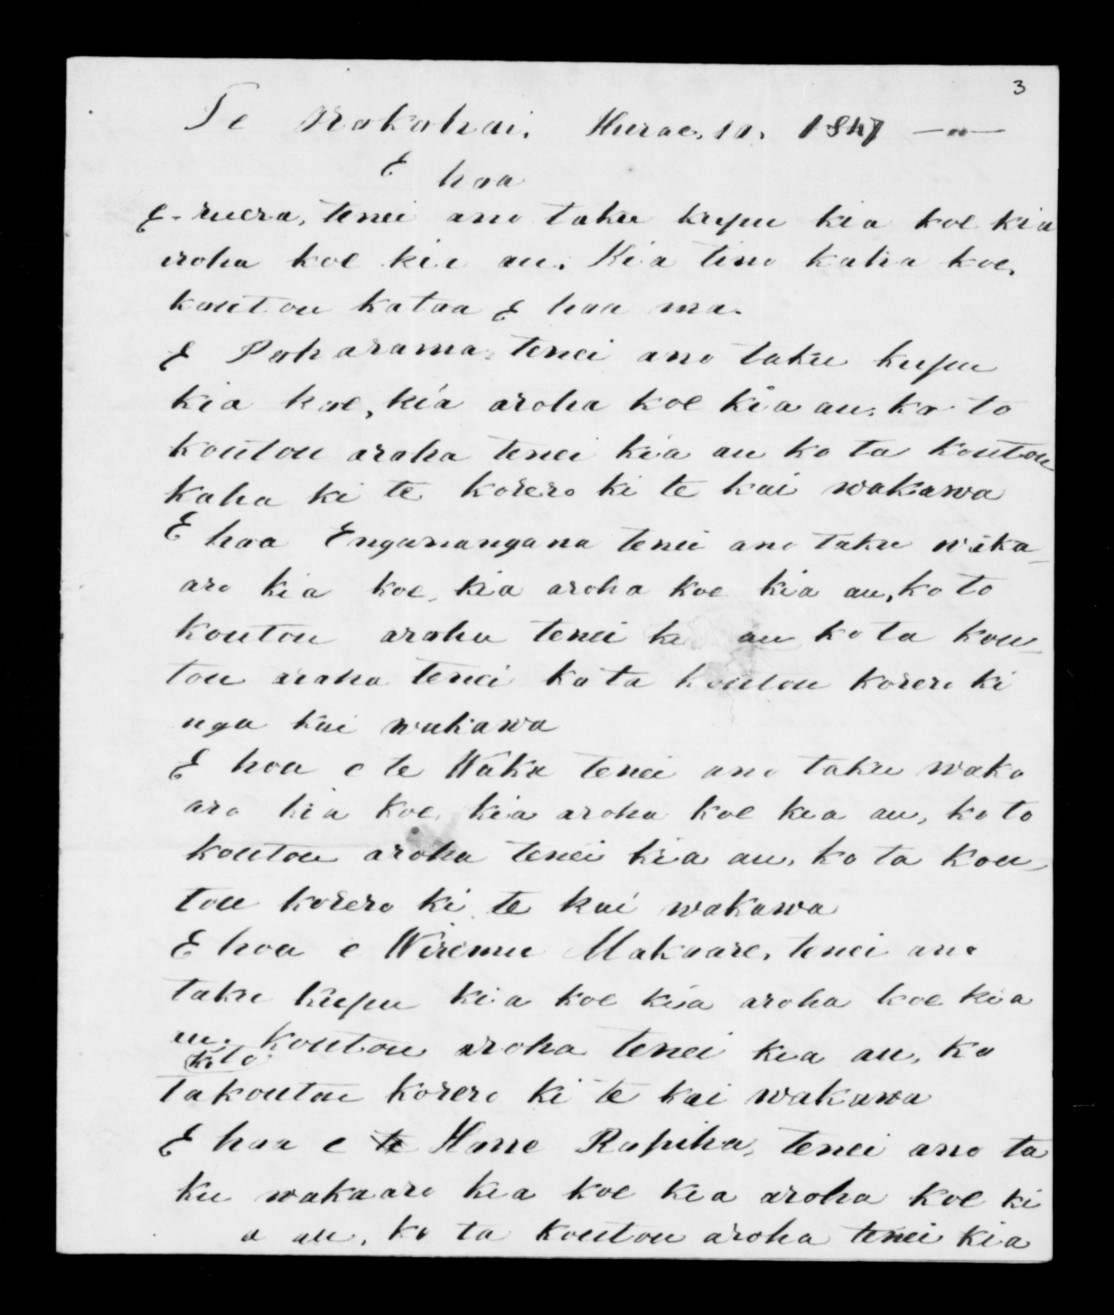 3
Te Hurae. 10. 1847 —"—
E hoa
E. ruera, tenei ano taku kupu kia koe kia
aroha koe kia au. Kia tino kaha koe,
koutou katoa E hoa ma.
E Poharama tenei ano taku kupu
kia koe, kia aroha koe kia au. ko to
koutou aroha tenei kia au ko ta koutou
kaha ki te korero ki te kai wakawa
E hoa Engarangana tenei ano taku waka-
aro kia koe, kia aroha koe kia au, ko to
koutou aroha tenei au ko ta kou-
tou aroha tenei ko ta koutou korero ki
nga kai wakawa
E hoa e te Waka tenei ano taku waka
aro kia koe, kia aroha koe kia au, ko to
koutou aroha tenei kia au, ko ta kou-
tou korero ki te kai wakawa
E hoa e Wiremu Makaare, tenei ano
taku kupu kia koe kia aroha koe kia
au. ko to koutou aroha tenei kia au, ko
takoutou korero ki te kai wakawa
E hoa e te Hone Ropiha, tenei ano ta
ku wakaaro kia koe kia aroha koe ki
a au, ko ta koutou aroha tenei kia